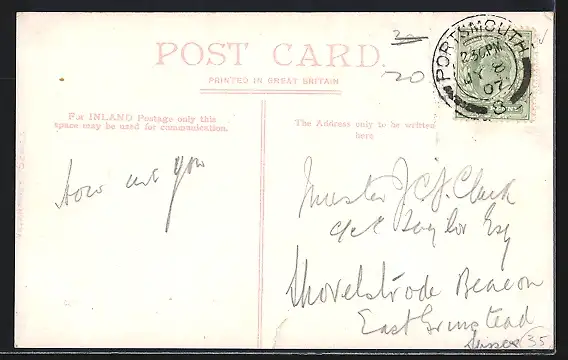 POST CARD.
PRINTED IN GREAT BRITAIN
For INLAND Postage only this
space may be used for communication.
The Address only to be written
here
PORTSMOUTH
2 30 PM
07
How are you
Master J C J. Clark
c/o Taylor Esq
Shovelstrode Beacon
East Grinstead
Sussex
20
35